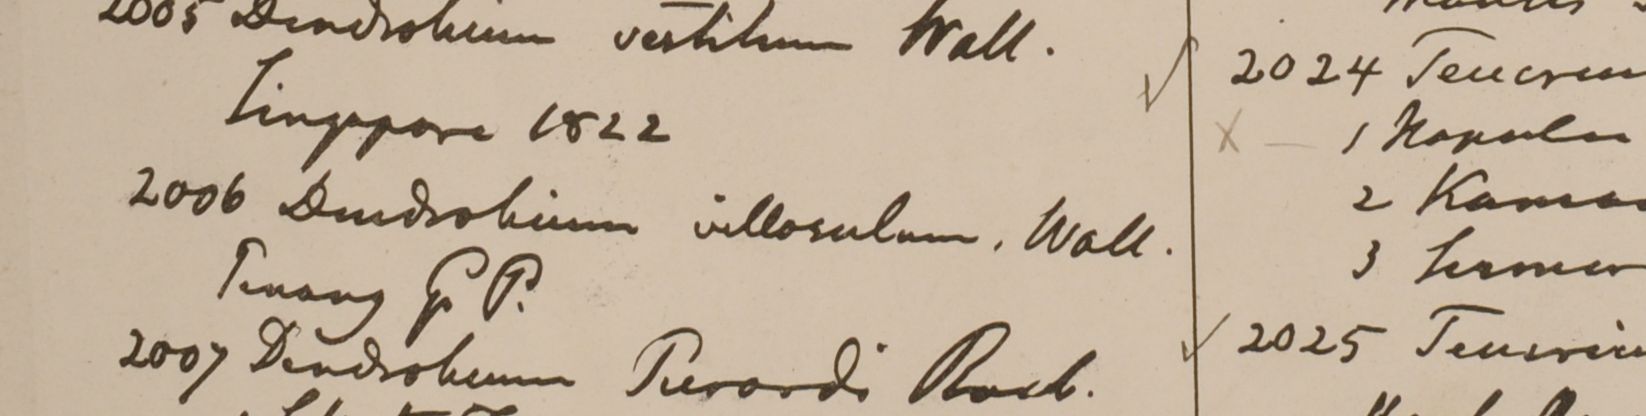 2005 Dendrobium vestitum Wall.
Singapore 1822
2006 Dendrobium villosulum. Wall.
Penang G. P.
2007 Dendrobium Pierardi Roxb.
2024 Teucrium
1 Napalia
2 Kamao
3 Sirmor
2025 Teucriu